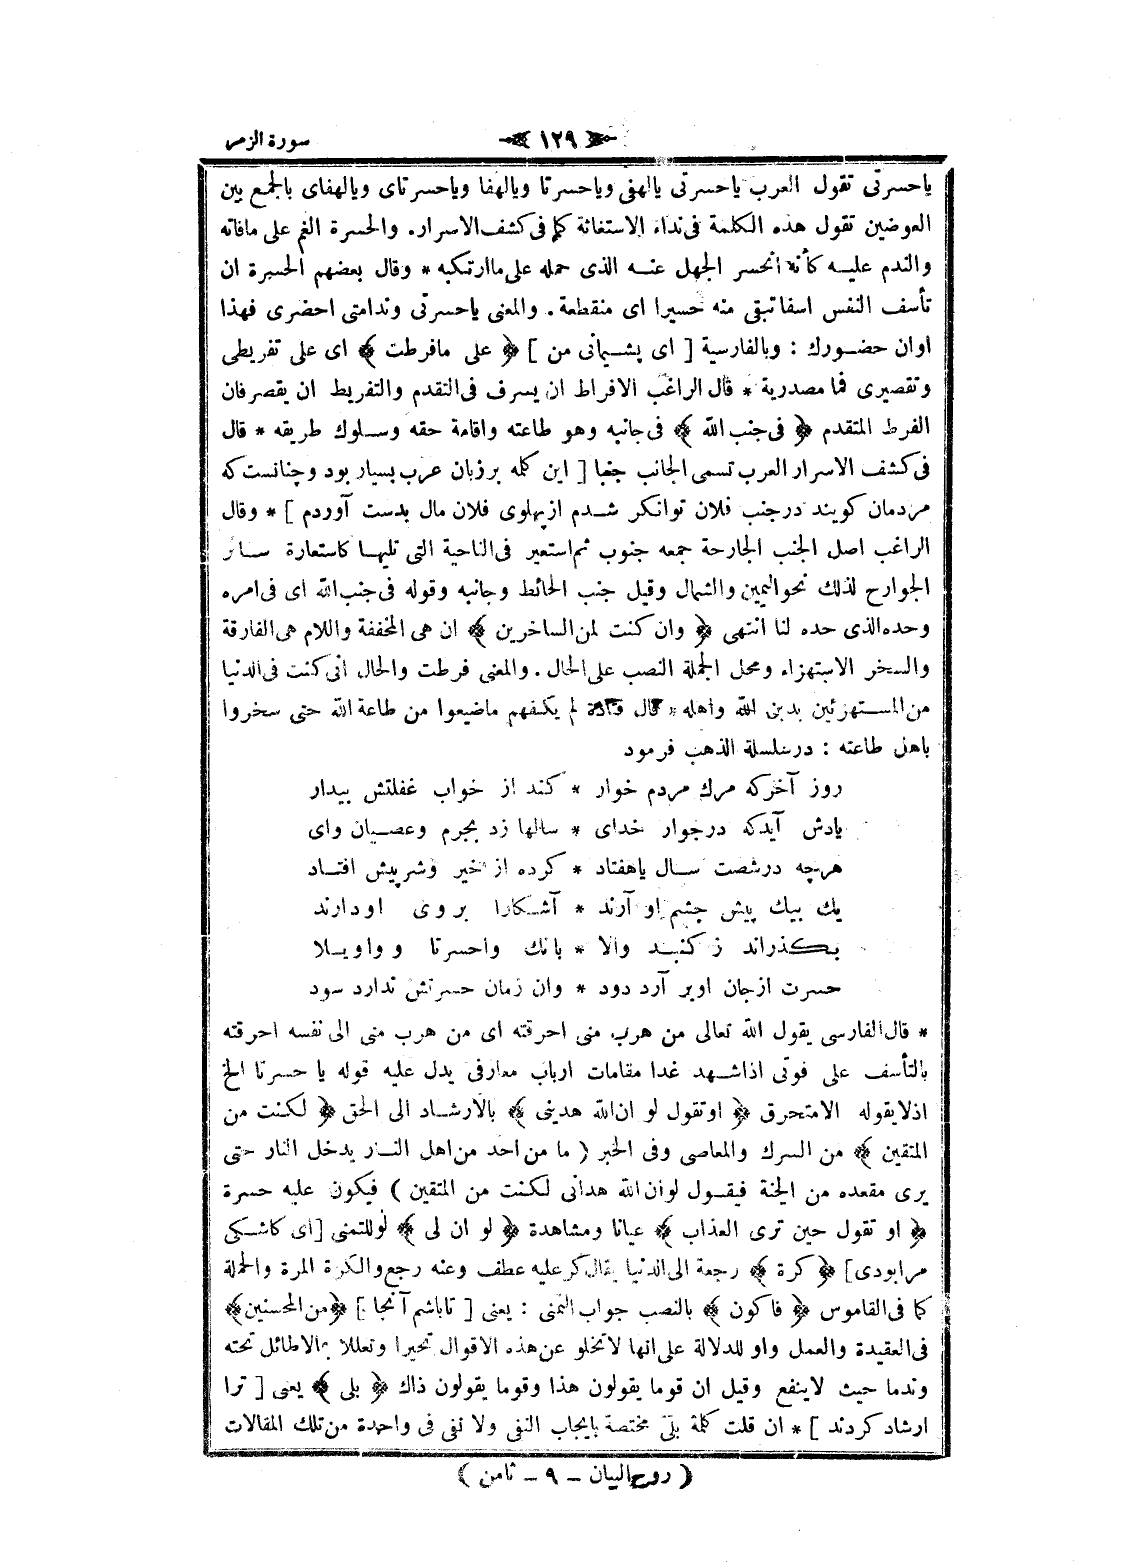 سورة الزمر ١٢٩
ياحسرتى تقول العرب ياحسرتى يالهفى وياحسرتا ويالهفا وياحسرتاى ويالهفاى بالجمع بين
العوضين تقول هذه الكلمة فى نداء الاستغاثة كما فى كشف الاسرار. والحسرة الغم على مافاته
والندم عليه كأنه انحسر الجهل عنه الذى حمله على ماارتكبه * وقال بعضهم الحسرة ان
تأسف النفس اسفا تبقى منه حسيرا اى منقطعة. والمعنى ياحسرتى وندامتى احضرى فهذا
اوان حضورك : وبالفارسية [ اى پشيمانى من ] ﴿ على مافرطت ﴾ اى على تفريطى
وتقصيرى فما مصدرية * قال الراغب الافراط ان يسرف فى التقدم والتفريط ان يقصر فان
الفرط المتقدم ﴿ فى جنب الله ﴾ فى جانبه وهو طاعته واقامة حقه وسلوك طريقه * قال
فى كشف الاسرار العرب تسمى الجانب جنبا [ اين كله بر زبان عرب بسيار بود وچنانست كه
مردمان كويند درجنب فلان توانكر شدم از پهلوى فلان مال بدست آوردم ] * وقال
الراغب اصل الجنب الجارحة جمعه جنوب ثم استعير فى الناحية التى تليها كاستعارة سائر
الجوارح لذلك نحو اليمين والشمال وقيل جنب الحائط وجانبه وقوله فى جنب الله اى فى امره
وحده الذى حده لنا انتهى ﴿ وان كنت لمن الساخرين ﴾ ان هى المخففة واللام هى الفارقة
والسخر الاستهزاء ومحل الجملة النصب على الحال. والمعنى فرطت والحال انى كنت فى الدنيا
من المستهزئين بدين الله واهله * قال قتادة لم يكفهم ماضيعوا من طاعة الله حتى سخروا
باهل طاعته : درسلسلة الذهب فرمود
روز آخركه مرك مردم خوار * كند از خواب غفلتش بيدار
يادش آيدكه درجوار خداى * سالها زد بجرم وعصيان واى
هرچه درشصت سال ياهفتاد * كرده از خير وشرپيش افتاد
يك بيك پيش چشم او آرند * آشكارا بروى او دارند
بكذراند ز كنبد والا * بانك واحسرتا و واويلا
حسرت ازجان اوبر آرد دود * وان زمان حسرتش ندارد سود
* قال الفارسى يقول الله تعالى من هرب منى احرقته اى من هرب منى الى نفسه احرقته
بالتأسف على فوتى اذا شهد غدا مقامات ارباب معارفى يدل عليه قوله يا حسرتا الخ
اذلا يقوله الامتحرق ﴿ او تقول لو ان الله هدينى ﴾ بالارشاد الى الحق ﴿ لكنت من
المتقين ﴾ من الشرك والمعاصى وفى الخبر ( ما من احد من اهل النار يدخل النار حتى
يرى مقعده من الجنة فيقول لوان الله هدانى لكنت من المتقين ) فيكون عليه حسرة
﴿ او تقول حين ترى العذاب ﴾ عيانا ومشاهدة ﴿ لو ان لى ﴾ لو للتمنى [اى كاشكى
مرابودى] ﴿ كرة ﴾ رجعة الى الدنيا يقال كر عليه عطف وعنه رجع والكرة المرة والحملة
كما فى القاموس ﴿ فاكون ﴾ بالنصب جواب التمنى : يعنى [ تاباشم آنجا ] ﴿من المحسنين﴾
فى العقيدة والعمل واو للدلالة على انها لاتخلو عن هذه الاقوال تحيرا وتعللا بمالاطائل تحته
وندما حيث لاينفع وقيل ان قوما يقولون هذا وقوما يقولون ذاك ﴿ بلى ﴾ يعنى [ ترا
ارشاد كردند ] * ان قلت كلمة بلى مختصة بايجاب النفى ولا نفى فى واحدة من تلك المقالات
( روح البيان – ٩ – ثامن )